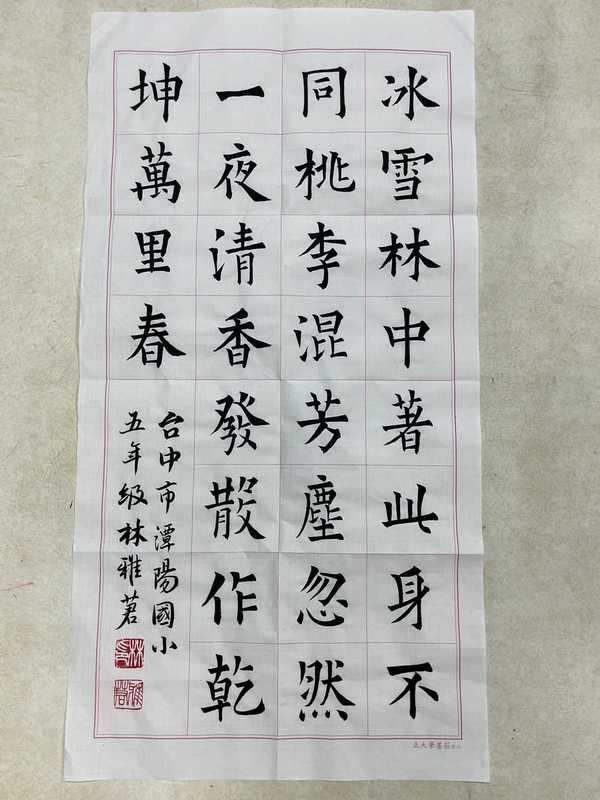 冰雪林中著此身不
同桃李混芳塵忽然
一夜清香發散作乾
坤萬里春
台中市潭陽國小
五年級林雅茗
正大筆墨莊